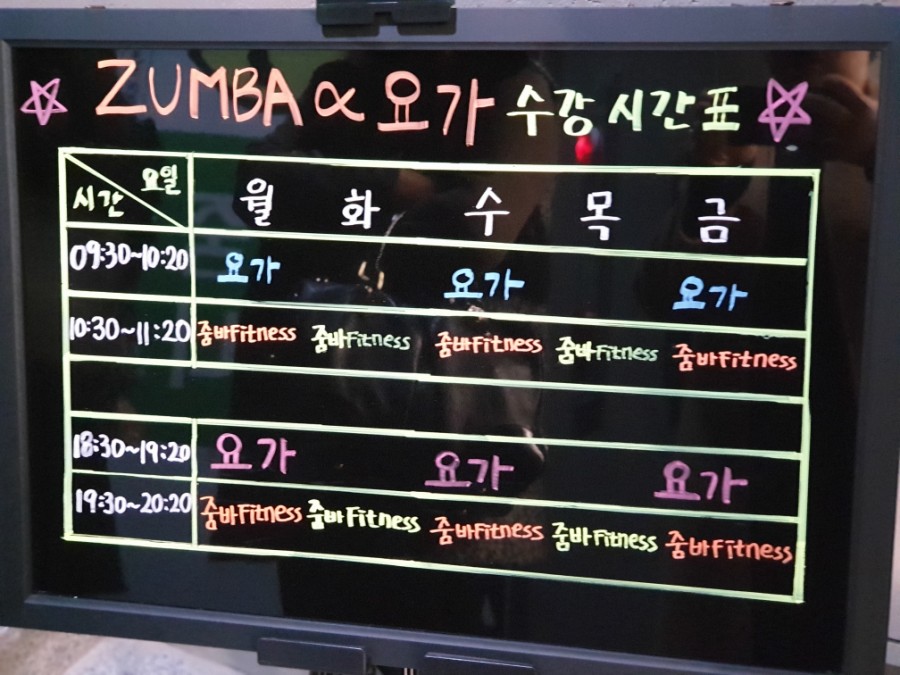 ZUMBA & 요가 수강 시간표
요일
시간
월 화 수 목 금
09:30~10:20 요가 요가 요가
10:30~11:20 줌바Fitness 줌바Fitness 줌바Fitness 줌바Fitness 줌바Fitness
18:30~19:20 요가 요가 요가
19:30~20:20 줌바Fitness 줌바Fitness 줌바Fitness 줌바Fitness 줌바Fitness